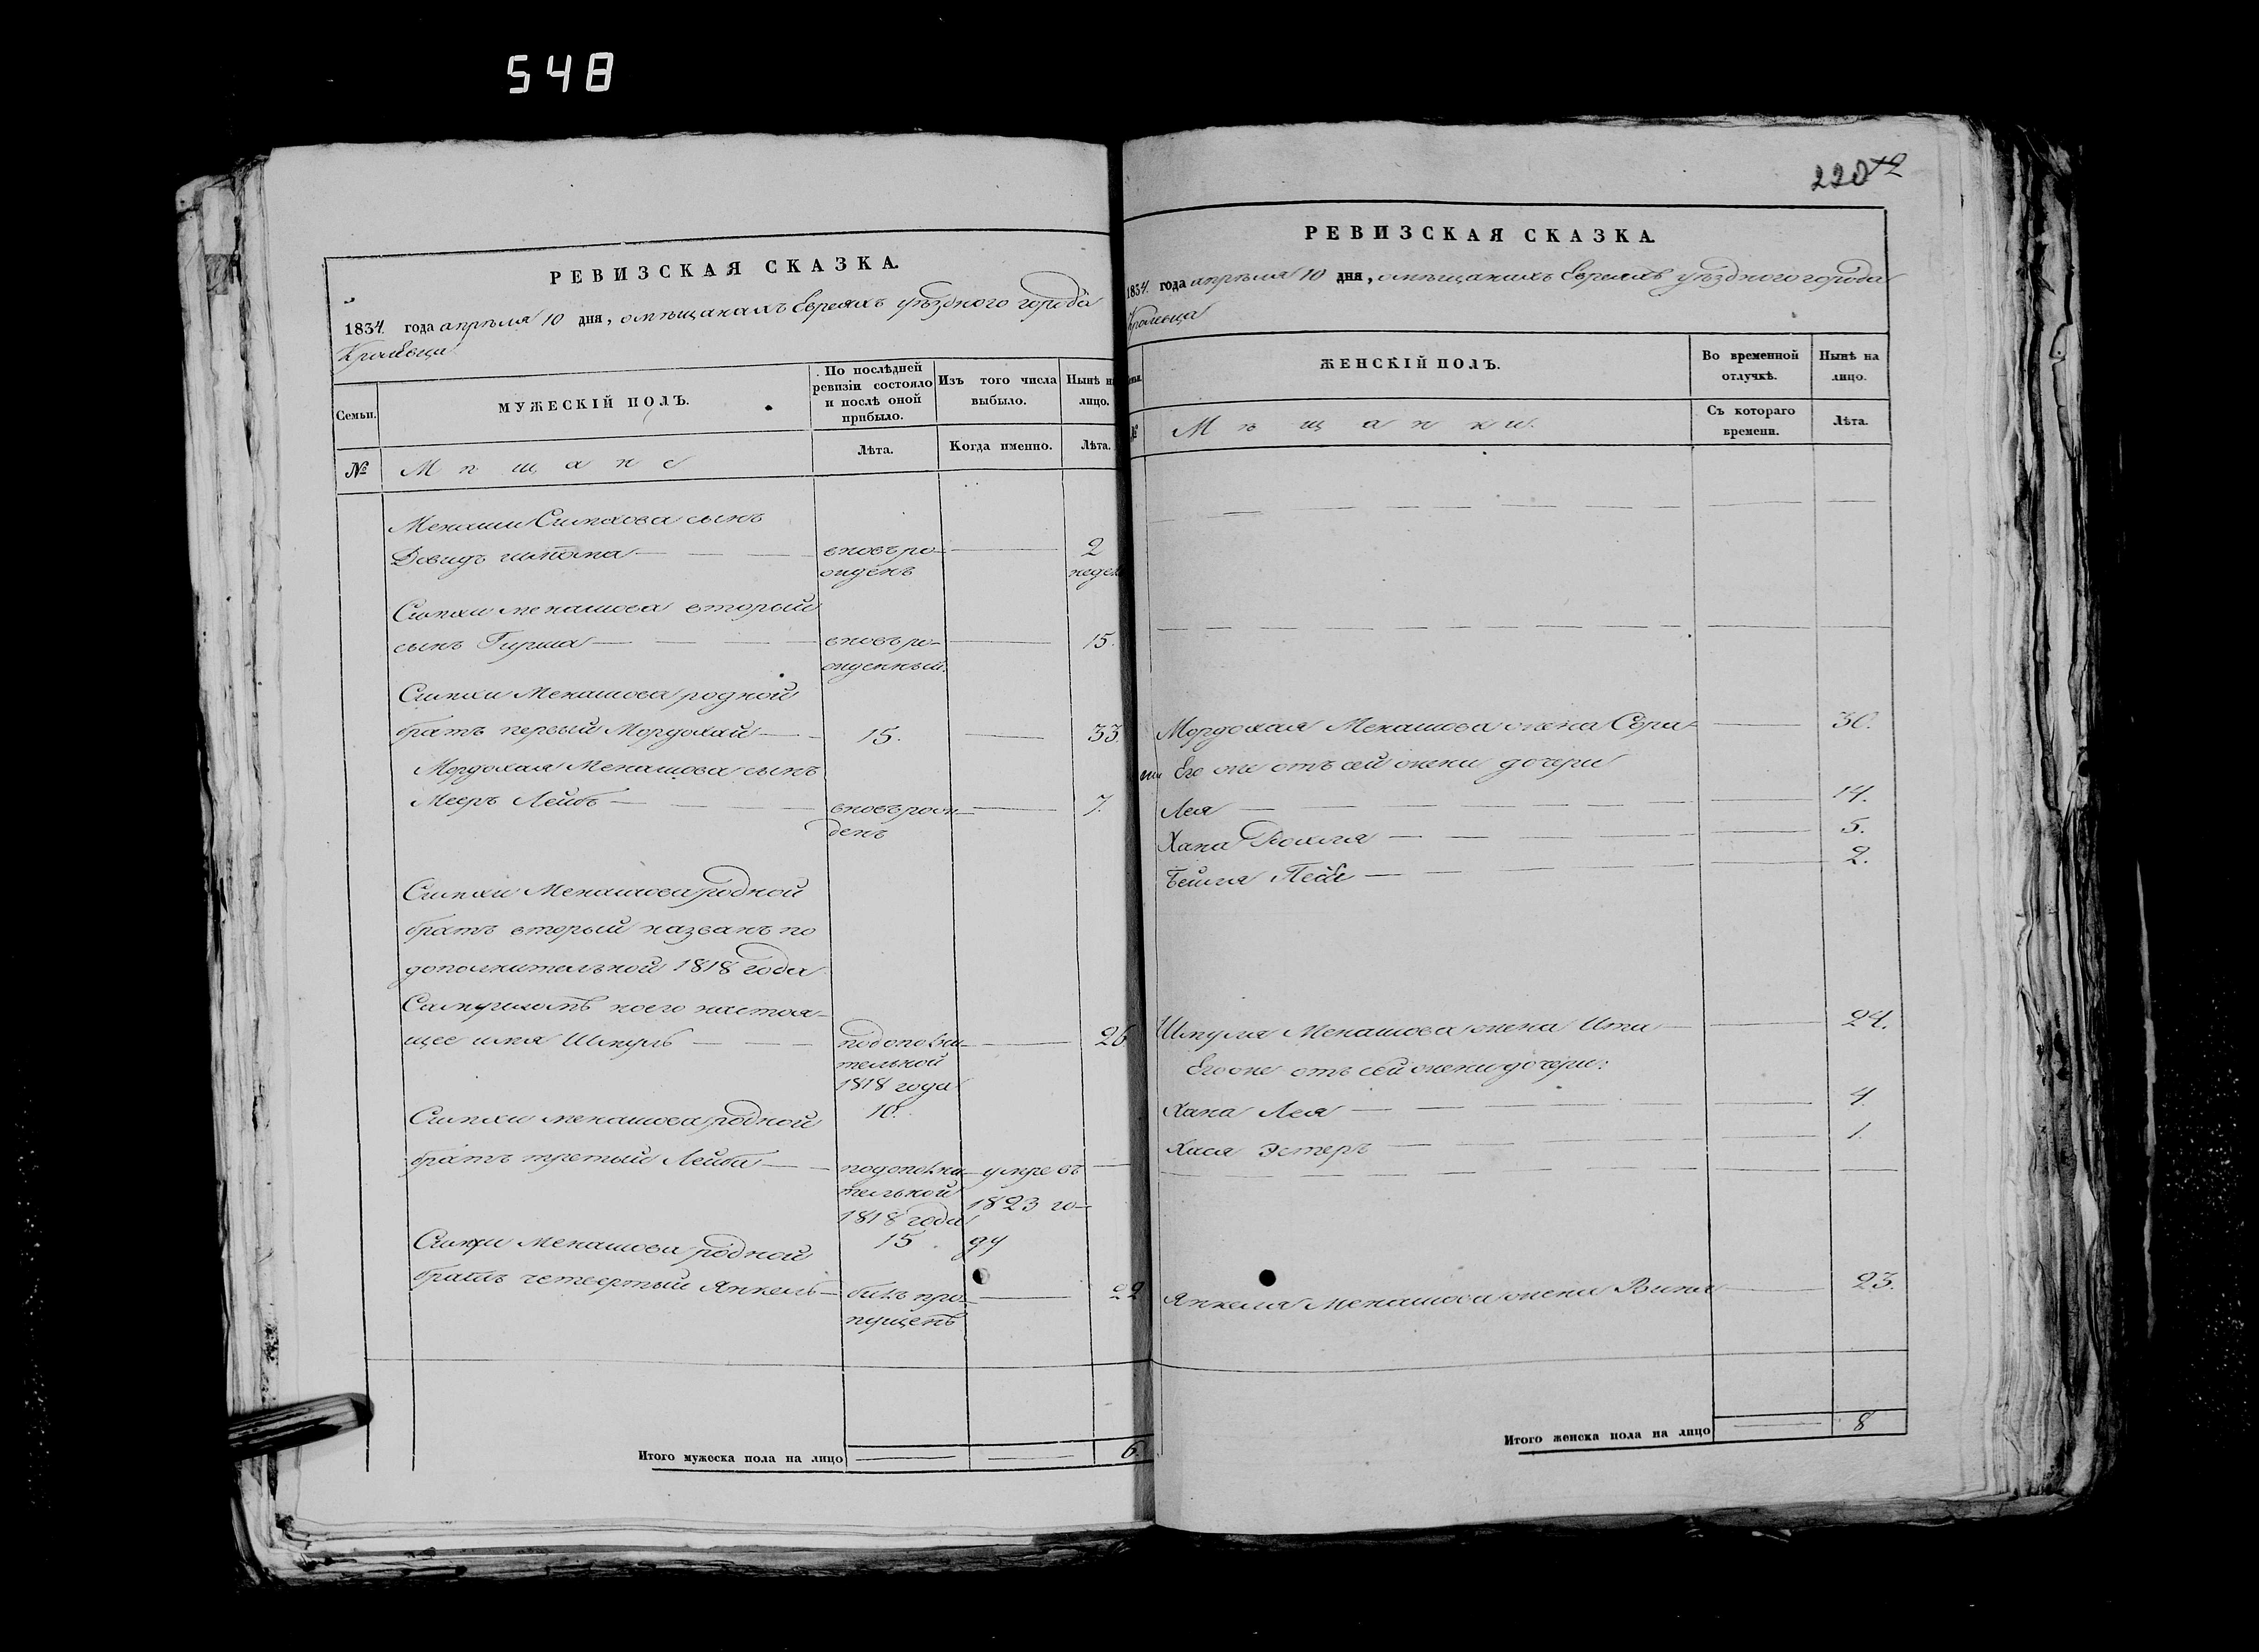 548
РЕВИЗСКАЯ СКАЗКА.
1834 года апрѣля 10 дня, о мѣщанахъ Евреяхъ уѣзднаго города
Кролевца
Семьи.
МУЖЕСКІЙ ПОЛЪ.
По послѣдней ревизіи состояло и послѣ оной прибыло.
Изъ того числа выбыло.
Нынѣ на лицо.
№
Мѣщане
Лѣта.
Когда именно.
Лѣта.
Менаши Симхова сынъ
Довидъ вновь ро- 2
жденъ недел
Симхи Менашова вторый
сынъ Гирша вновь ро- 15.
жденный.
Симхи Менашова родной
братъ первый Мордохай 15. 33.
Мордохая Менашова сынъ
Мееръ Лейбъ вновь рож- 7.
денъ
Симхи Менашова родной
братъ вторый названъ по
дополнительной 1818 года
коего настоя-
щее имя Шмуль по дополни- 26
тельной
1818 года
10.
Симхи Менашова родной
братъ третий Лейба по дополни- умре въ
тельной 1823 го-
1818 года
15 ду
Симхи Менашова родной
братъ четвертый Янкель былъ про- 22
пущенъ
Итого мужеска пола на лицо 6
220
РЕВИЗСКАЯ СКАЗКА.
1834 года апрѣля 10 дня, о мѣщанахъ Евреяхъ уѣзднаго города
Кролевца
ЖЕНСКІЙ ПОЛЪ.
Во временной отлучкѣ.
Нынѣ на лицо.
№
Мѣщанки.
Съ котораго времени.
Лѣта.
Мордохая Менашова жена Сора 30.
Его же отъ сей жены дочери
Лея 14.
Хана Рохля 5.
Бейля 2.
Шмуля Менашова жена Ита 24.
Его же отъ сей жены дочери:
Хана Лея 4
Хася Эстеръ 1.
Янкеля Менашова жена 23.
Итого женска пола на лицо 8